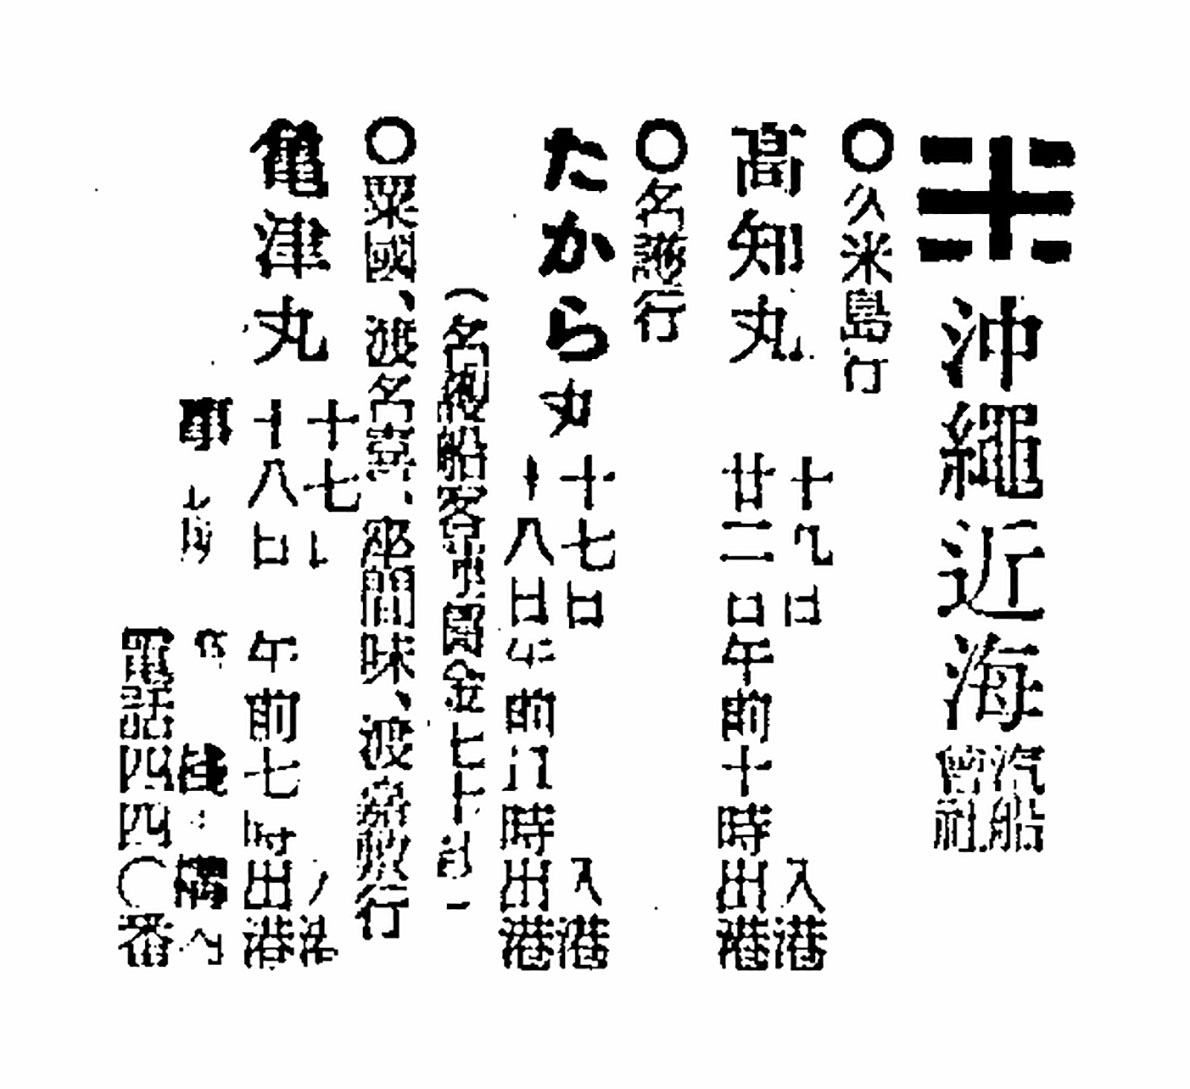 沖繩近海汽船會社
〇久米島行
高知丸
十九日入港
廿二日午前十時出港
〇名護行
たから丸
十七日入港
十八日午前八時出港
(名護船客車賃金七十
〇粟國、渡名喜、座間味、渡嘉敷行
亀津丸
十七日入港
十八日午前七時出港
構内
電話四四〇番